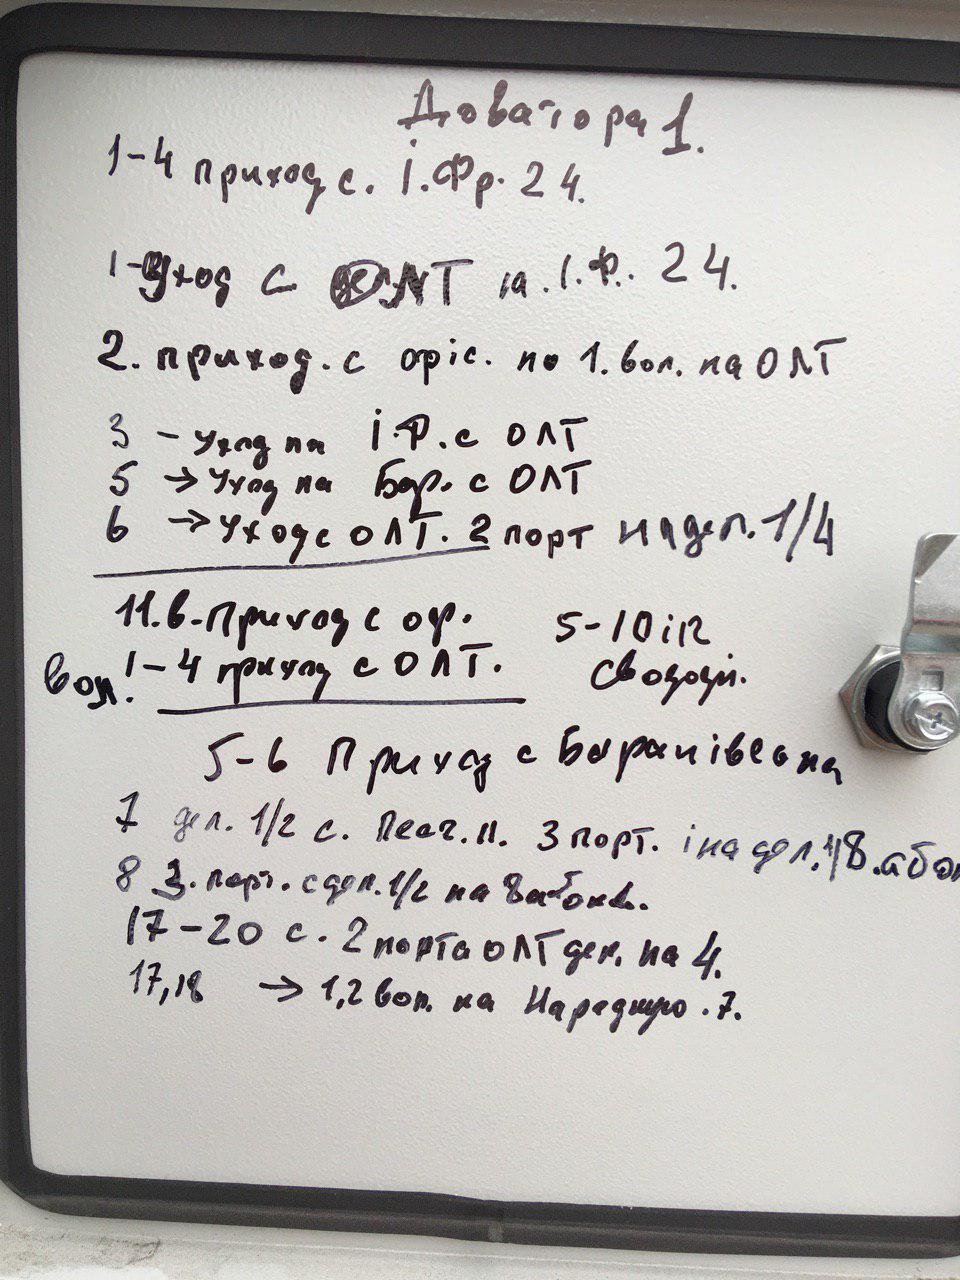 Доватора 1.
1-4 приход с. І.Фр. 24.
1-Уход с ОЛТ на І.Ф. 24.
2. приход. с офіс. по 1. вол. на ОЛТ
3 - Уход на І.Ф. с ОЛТ
5 → Уход на Бар. с ОЛТ
6 → Уход с ОЛТ. 2 порт на дел. 1/4
11.в. Приход с оф.
вол. 1-4 приход с ОЛТ.
5-10
свободн.
5-6 Приход с Баранівська
7 дел. 1/2 с. 3 порт. і на дел. 1/8.
8 3. порт. с дел. 1/2 на 8 абонв.
17-20 с. 2 порта ОЛТ дел. на 4.
17,18 → 1,2 вол. на Народную. 7.